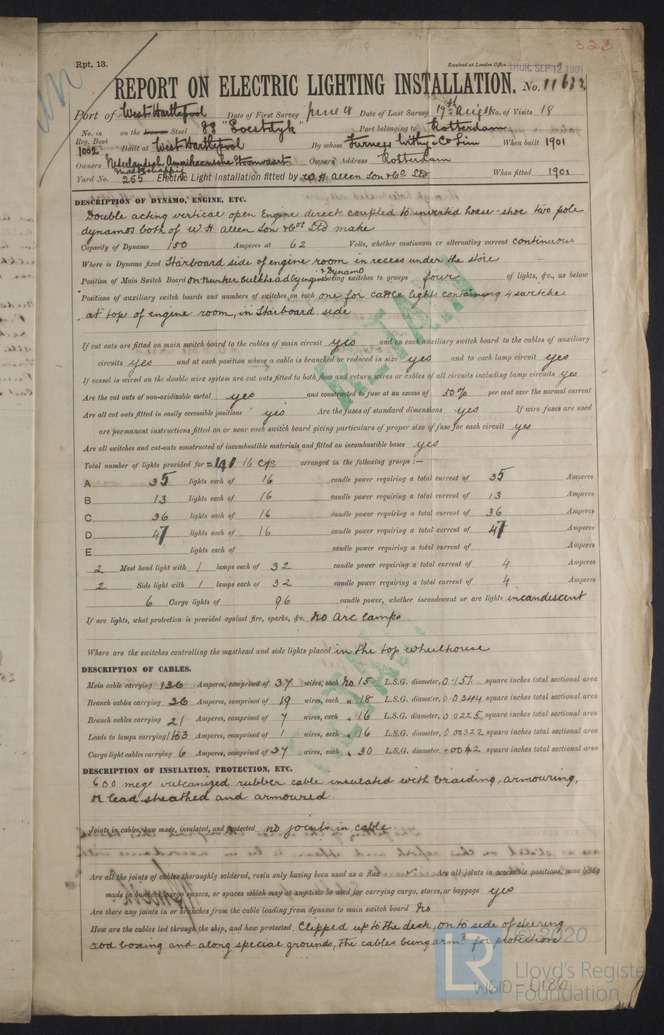 323
Rpt. 13.
Received at London Office THUR. SEP 12 1901
REPORT ON ELECTRIC LIGHTING INSTALLATION. No. 11632
Port of West Hartlepool Date of First Survey June 18 Date of Last Survey 19th Aug No. of Visits 18
No. in on the Iron or Steel SS "Soestdyk" Port belonging to Rotterdam
Reg. Book
1002 Built at West Hartlepool By whom Furness Withy & Co Lim When built 1901
Owners Nederlandsch Amerikaansche Stoomvaart Owners' Address Rotterdam
Maatschappij
Yard No. 255 Electric Light Installation fitted by W H Allen Son & Co Ltd When fitted 1901
DESCRIPTION OF DYNAMO, ENGINE, ETC.
Double acting vertical open Engine direct coupled to inverted horse-shoe two pole
dynamo both of W H Allen Son & Co Ltd make
Capacity of Dynamo 150 Amperes at 62 Volts, whether continuous or alternating current continuous
Where is Dynamo fixed Starboard side of engine room in recess under the store
Position of Main Switch Board on Bunker Bulkhead by engine & Dynamo having switches to groups four of lights, &c., as below
Positions of auxiliary switch boards and numbers of switches on each one for cattle lights containing 4 switches
at top of engine room, in Starboard side
If cut outs are fitted on main switch board to the cables of main circuit yes and on each auxiliary switch board to the cables of auxiliary
circuits yes and at each position where a cable is branched or reduced in size yes and to each lamp circuit yes
If vessel is wired on the double wire system are cut outs fitted to both flow and return wires or cables of all circuits including lamp circuits yes
Are the cut outs of non-oxidizable metal yes and constructed to fuse at an excess of 50% per cent over the normal current
Are all cut outs fitted in easily accessible positions yes Are the fuses of standard dimensions yes If wire fuses are used
are permanent instructions fitted on or near each switch board giving particulars of proper size of fuse for each circuit yes
Are all switches and cut-outs constructed of incombustible materials and fitted on incombustible bases yes
Total number of lights provided for 16 cp arranged in the following groups :—
A 35 lights each of 16 candle power requiring a total current of 35 Amperes
B 13 lights each of 16 candle power requiring a total current of 13 Amperes
C 36 lights each of 16 candle power requiring a total current of 36 Amperes
D 47 lights each of 16 candle power requiring a total current of 47 Amperes
E lights each of candle power requiring a total current of Amperes
2 Mast head light with 1 lamps each of 32 candle power requiring a total current of 4 Amperes
2 Side light with 1 lamps each of 32 candle power requiring a total current of 4 Amperes
6 Cargo lights of 96 candle power, whether incandescent or arc lights incandescent
If arc lights, what protection is provided against fire, sparks, &c. No arc lamps
Where are the switches controlling the masthead and side lights placed in the top wheelhouse
DESCRIPTION OF CABLES.
Main cable carrying 136 Amperes, comprised of 37 wires, each No. 15 L.S.G. diameter, 0.151 square inches total sectional area
Branch cables carrying 36 Amperes, comprised of 19 wires, each " 18 L.S.G. diameter, 0.0344 square inches total sectional area
Branch cables carrying 21 Amperes, comprised of 7 wires, each " 16 L.S.G. diameter, 0.0225 square inches total sectional area
Leads to lamps carrying 1.33 Amperes, comprised of 1 wires, each " 16 L.S.G. diameter, 0.00322 square inches total sectional area
Cargo light cables carrying 6 Amperes, comprised of 37 wires, each " 30 L.S.G. diameter, square inches total sectional area
DESCRIPTION OF INSULATION, PROTECTION, ETC.
600 meg vulcanized rubber cable insulated with braiding, armouring,
or lead sheathed and armoured.
Joints in cables, how made, insulated, and protected no joints in cable
Are all the joints of cables thoroughly soldered, resin only having been used as a flux Are all joints in accessible positions, none being
made in bunkers, cargo spaces, or spaces which may at any time be used for carrying cargo, stores, or baggage yes
Are there any joints in or branches from the cable leading from dynamo to main switch board No
How are the cables led through the ship, and how protected Clipped up to the deck, on to side of steering
rod boxing and along special grounds, the cables being arm'd for protection
© 2020
LR
Lloyd's Register
Foundation
W610-0180